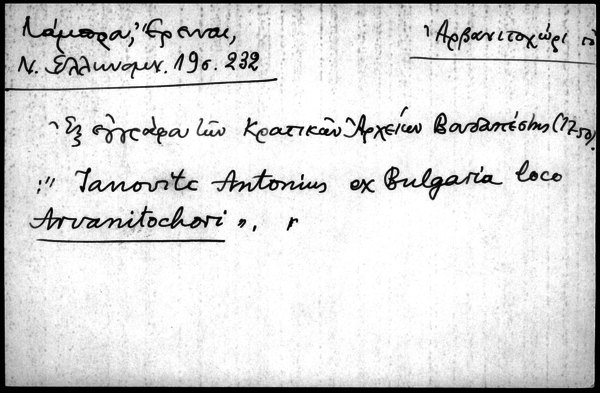 Λάμπρου, Ἔρευναι,
Ν. Ἑλληνομν. 19σ. 232
Ἀρβανιτοχώρι τὸ
Ἐξ ἐγγράφου τῶν Κρατικῶν Ἀρχείων Βουδαπέστης (1750).
:" Ianovitc Antonius ex Bulgaria loco
Arvanitochori ",